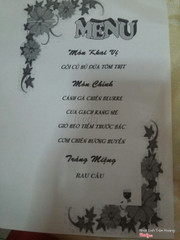 MENU
Món Khai Vị
GỎI CỦ HỦ DỪA TÔM THỊT
Món Chính
CÁNH GÀ CHIÊN BEURRE
CUA GẠCH RANG ME
GIÒ HEO TIỀM THUỐC BẮC
CƠM CHIÊN DƯƠNG CHÂU
Tráng Miệng
RAU CÂU